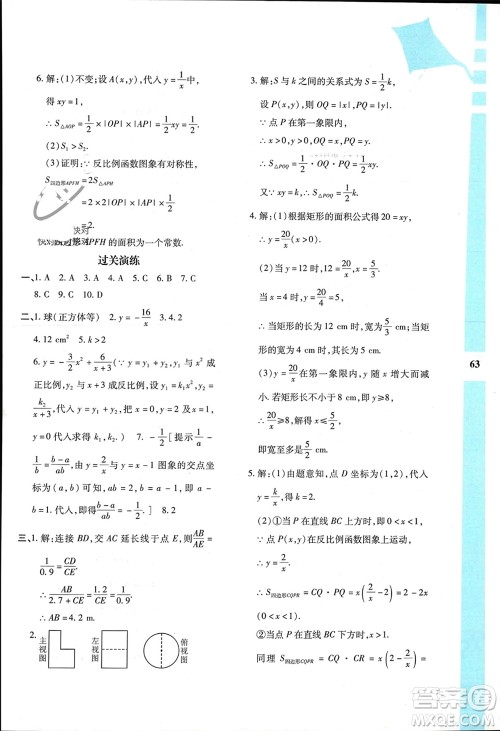 6. 解:(1)不变;设A(x,y),代入y=1/x中,
得 xy=1,
∴S△AOP=1/2×|OP|×|AP|=1/2.
(2)S₁>S₂.
(3)证明:∵反比例函数图象有对称性,
S四边形APFH=2S△APH
=2×1/2×|OP|×|AP|×1/2
=2.
APFH 的面积为一个常数.
过关演练
一、1. A 2. A 3. A 4. A 5. C 6. A 7. C
8. C 9. C 10. D
二、1. 球(正方体等) 2. y=-16/x 3. 4.2
4. 12 cm² 5. k>2
6. y=-3/2 x+2/(x+3) [提示:∵y=y₁-y₂,y₁ 与 x
成正比例,y₂ 与 x+3 成反比例,∴设 y₁=k₁x,y₂
=k₂/(x+3),代入求得 k₁,k₂] 7. b-a/ab [提示:
∵1/a-1/b=(b-a)/ab,又∵图象的交点坐
标为(a,b),可得(b-a)/ab的值.]
三、1. 解:连接 BD,交 AC 延长线于点 E,则AB/AE=
1/0.9=CD/CE
AB/(2.7+CE)=CD/CE=1/0.9
∴AB=4.2 m.
2. 主视图 左视图 俯视图
3. 解:S 与 k 之间的关系式为 S=1/2 k.
设 P(x,y),则 OQ=|x|,PQ=|y|.
∵点 P 在第一象限内,
∴x>0,y>0,∴OQ=x,PQ=y.
∴S△POQ=1/2 OQ·PQ=1/2 xy=1/2 k.
∴S=1/2 k.
4. 解:(1)根据矩形的面积公式得 20=xy.
∴y=20/x(x>0).
(2)当 x=12 时,y=20/12=5/3.
∴当矩形的长为 12 cm 时,宽为 5/3 cm.
当 y=4 时,4=20/x,x=5.
∴当矩形的宽为 4 cm 时,长为 5 cm.
(3)y=20/x在第一象限内,y 随 x 的增大而减
小.若矩形的长不小于 8 cm,则
x=20/y≥8,∵y>0,∴20≥8y,y≤5/2.
即宽至多是5/2 cm.
5. 解:(1)由题意知,点 D 坐标为(1,2),代入
y=k/x,得 2=k/1,k=2.
(2)①当 P 在直线 BC 上方时,即 0<x<1,
∵点 P(x,y)在反比例函数图象上运动,
∴y=2/x.
∴S四边形CQPR=CQ·PQ=x(2/x-2)=2-2x
(0<x<1).
②当点 P 在直线 BC 下方时,即 x>1.
同理 S四边形CQPR=CQ·CR=x(2-2/x)=
63
答案圈
MXQE.COM